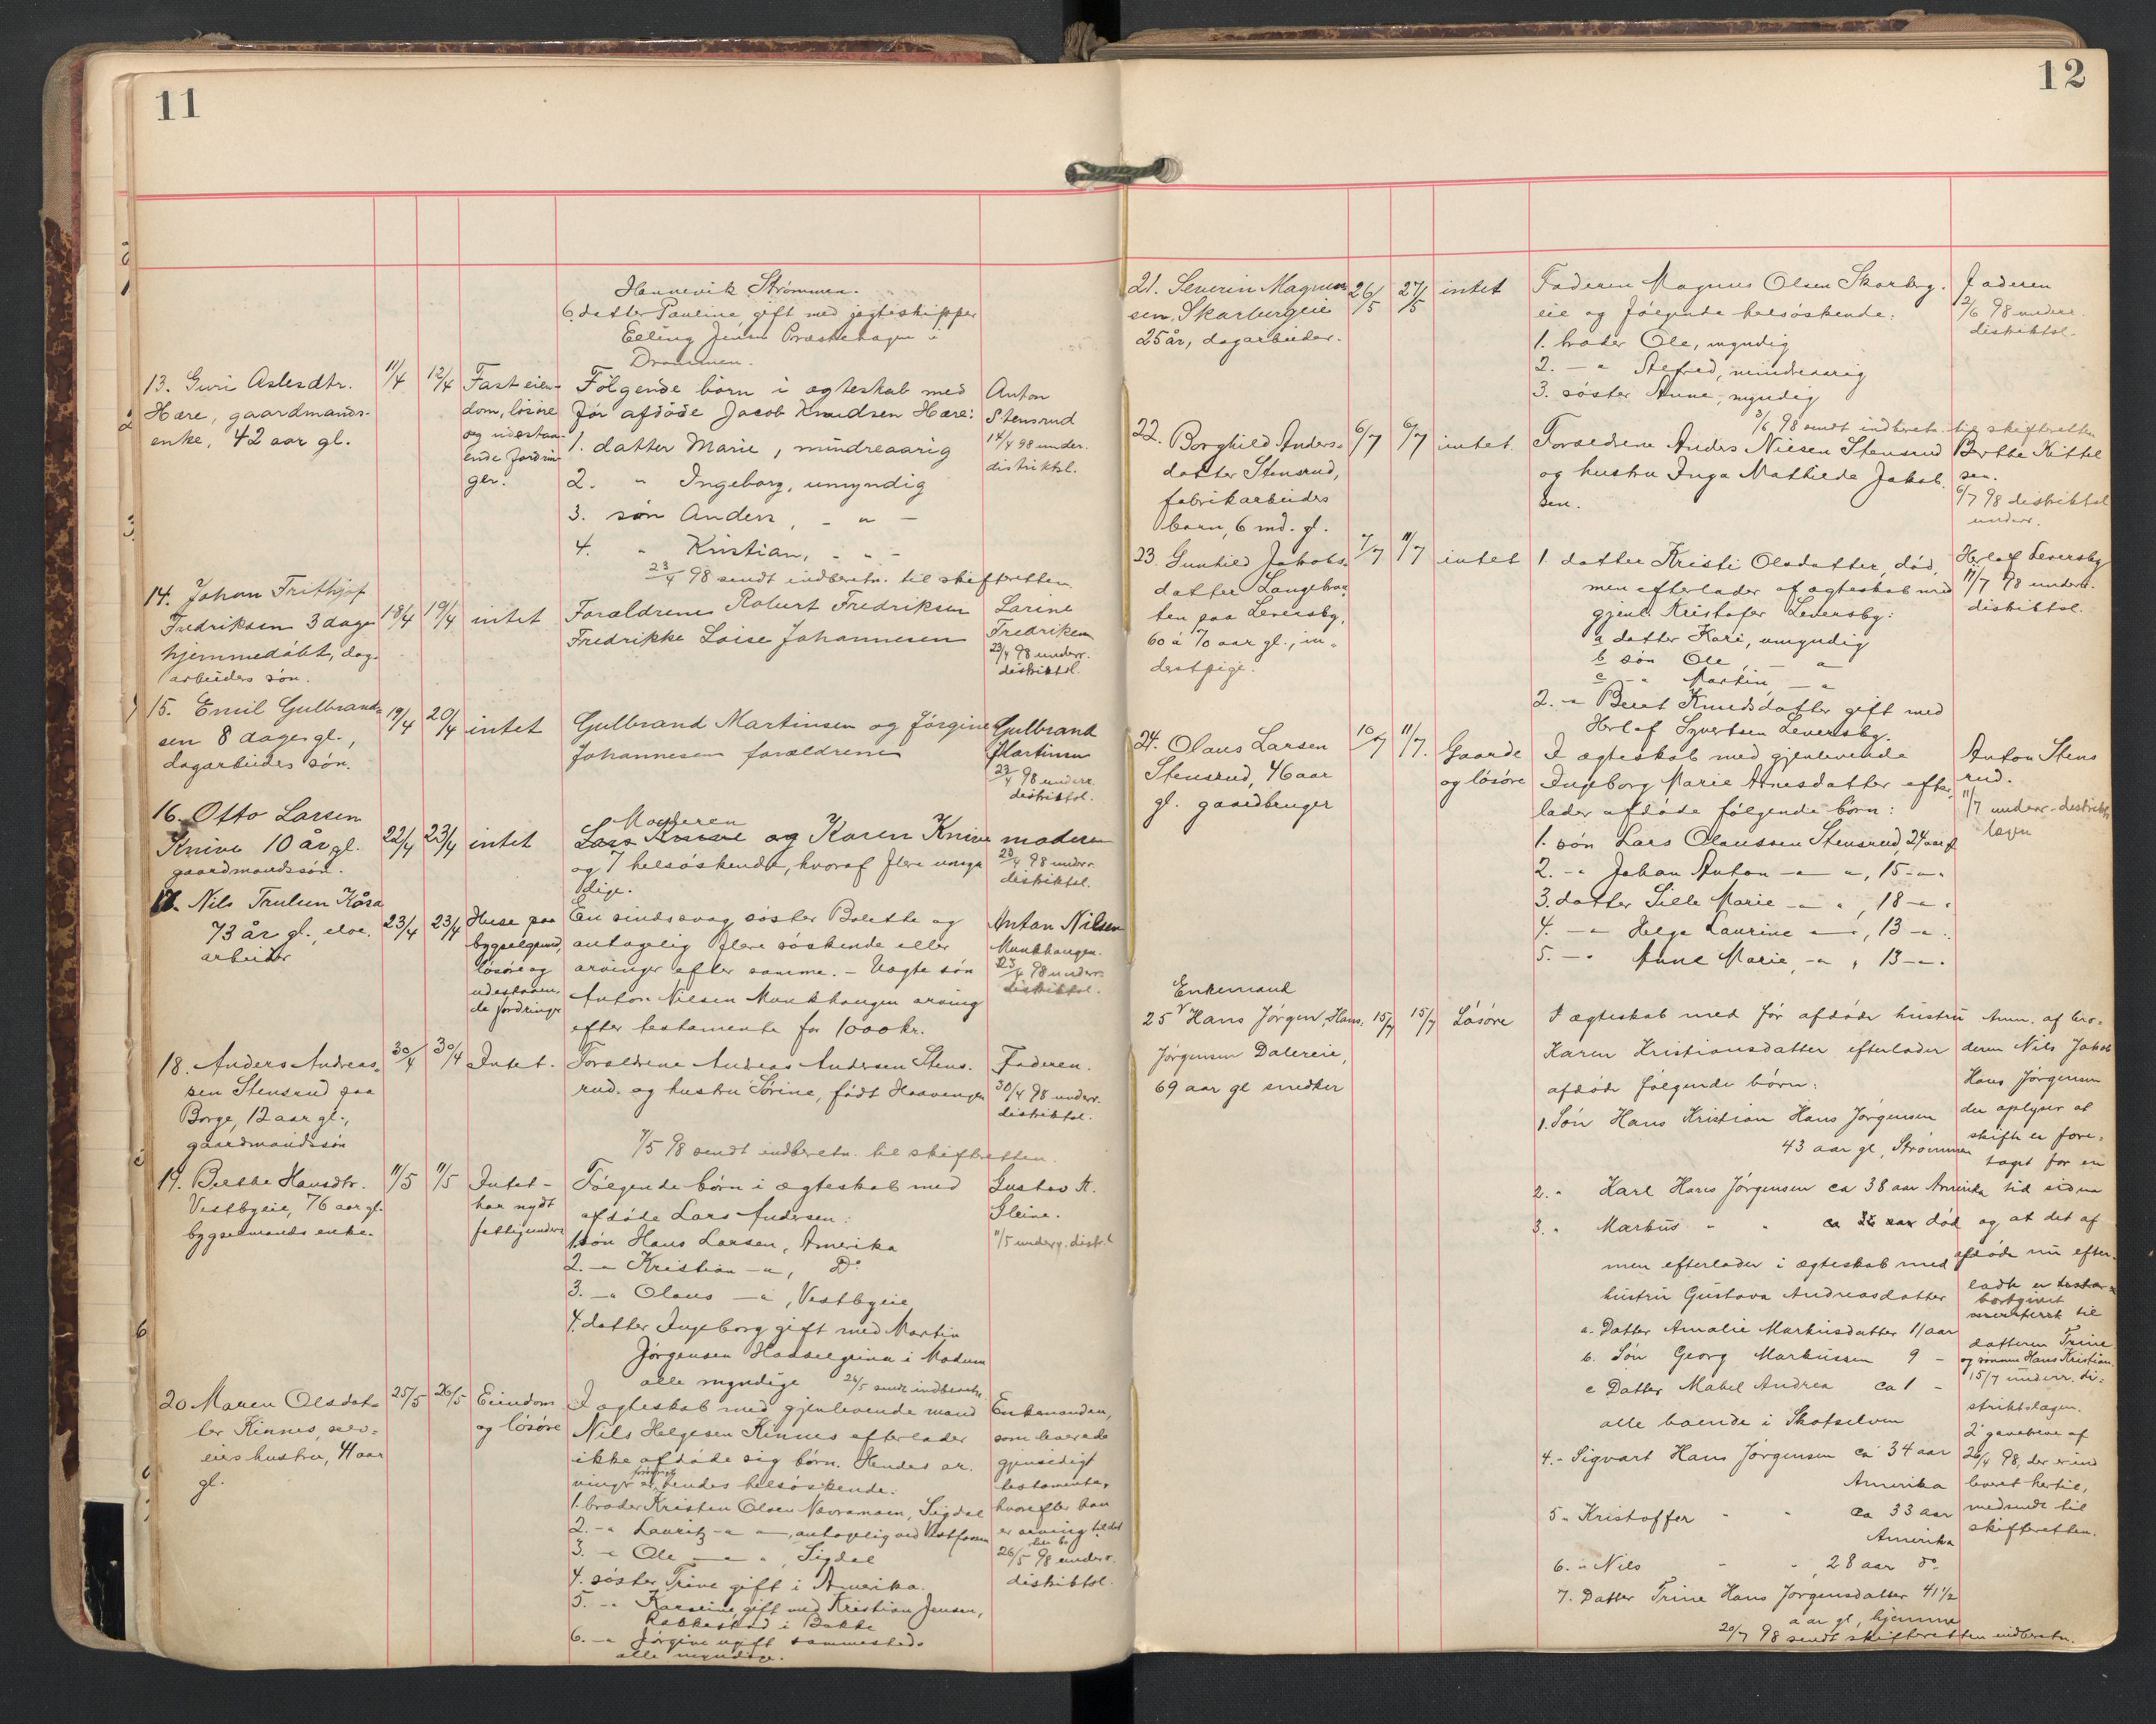 11
Hannevik Strømmen.
6. datter Pauline gift med jagteskipper
Elling Jensen Præstehagen i
Drammen.
13. Guri Aslesdtr.
Hære, gaardmands-
enke, 42 aar gl.
11/4
12/4
Fast eien-
dom, løsøre
og udestaa-
ende fordrin-
ger.
Følgende børn i ægteskab med
før afdøde Jacob Knudsen Hære:
1. datter Marie, mindreaarig
2. " Ingeborg, umyndig
3. søn Anders, - " -
4. " Kristian, - " -
23/4 98 sendt indberetn. til skifteretten.
Anton
Stensrud
14/4 98 under.
distriktsl.
14. Johan Frithjof
Fredriksen 3 dage
hjemmedøbt, dag-
arbeiders søn.
18/4
19/4
intet
Forældrene Robert Fredriksen
Fredrikke Loise Johannesen
Larine
Fredriksen
23/4 98 underr.
distriktsl.
15. Emil Gulbrand-
sen 8 dage gl.,
dagarbeiders søn.
19/4
20/4
intet
Gulbrand Martinsen og Jørgine
Johannesen forældrene
Gulbrand
Martinsen
23/4 98 underr.
distriktsl.
16. Otto Larsen
Knive 10 år gl.
gaardmandssøn.
22/4
23/4
intet
Moderen
Lars Knive og Karen Knive
og 7 helsøskende, hvoraf flere umyn
dige.
moderen
23/4 98 underr.
distriktsl.
17. Nils Trulsen Kåsa
73 år gl., elve-
arbeider
23/4
23/4
Huse paa
bygselgrund,
løsøre og
udestaaen-
de fordringer
En sindssvag søster Bolette og
antagelig flere søskende eller
arvinger efter samme. - Uægte søn
Anton Nilsen Munkhaugen arving
efter testamente for 1000 kr.
Anton Nilsen
Munkhaugen.
23/4 98 underr.
distriktsl.
18. Anders Andreas-
sen Stensrud paa
Borge, 12 aar gl.,
gaardmandssøn
30/4
30/4
Intet.
Forældrene Andreas Andersen Stens-
rud og hustru Sørine, født Haavengen
7/5 98 sendt indberetn. til skifteretten.
Faderen.
30/4 98 underr.
distriktsl.
19. Berthe Hansdtr.
Vestbyeie, 76 aar gl.
bygselmands enke.
11/5
11/5
Intet -
har nydt
fattigunders.
Følgende børn i ægteskab med
afdøde Lars Andersen:
1. søn Hans Larsen, Amerika
2. -" Kristian -", Do
3. -" Olaus -", Vestbyeie
4. datter Ingeborg gift med Martin
Jørgensen Haaselgrina i Modum
alle myndige 24/5 sendt indberetn.
Gustav A.
Gleine.
11/5 underr. distr.l
20 Maren Olsdat-
ter Kinnes, selv-
eiers hustru, 41 aar
gl.
25/5
26/5
Eiendom
og løsøre
I ægteskab med gjenlevende mand
Nils Helgesen Kinnes efterlader
ikke afdøde sig børn. Hendes ar-
vinger er hendes helsøskende:
1. broder Kristen Olsen Narramoen, Sigdal
2. -" Lauritz -" -, antagelig ved Vestfossen
3. -" Ole -" -, Sigdal
4. søster Trine gift i Amerika.
5. -" Karoline, gift med Kristian Jensen,
Rakkestad i Bakke
6. -" Jørgine ugift sammesteds
alle myndige.
Enkemanden,
som havde
gjensidigt
testamente,
hvorefter han
er arving til det
hele bo
26/5 98 underr.
distriktsl.
12
21. Severin Magnus-
sen Skarbergeie
25 år, dagarbeider.
26/5
27/5
intet
Faderen Magnus Olsen Skarberg-
eie og følgende helsøskende:
1. broder Ole, myndig
2. -" Alfred, mindreaarig
3. søster Anne, myndig
3/6 98 sendt indberetn. til skifteretten
Faderen
2/6 98 underr.
distriktsl.
22. Borghild Anders-
datter Stensrud,
fabrikarbeiders
barn, 6 md. gl.
6/7
6/7
intet.
Forældrene Anders Nilsen Stensrud
og hustru Inga Mathilde Jakob-
sen.
Berthe Kittel
sen.
6/7 98 distriktsl
underr.
23. Gunhild Jakobs-
datter Langebak-
ken paa Leversby,
60 à 70 aar gl., in-
derstpige.
7/7
11/7
intet
1 datter Kristi Olsdatter, død,
men efterlader af ægteskab med
gjenl. Kristofer Leversby:
a datter Kari, umyndig
b søn Ole, - "
c -" Martin - "
2. -" Beret Knudsdatter gift med
Herlof Syvertsen Leversby.
Herlof Leversby
11/7 98 underr.
distriktsl.
24. Olaus Larsen
Stensrud, 46 aar
gl. gaardbruger
10/7
11/7.
Gaarde
og løsøre
I ægteskab med gjenlevende
Ingeborg Marie Arnesdatter efter-
lader afdøde følgende børn:
1. søn Lars Olaussen Stensrud, 24 aar gl
2. -" Johan Anton -" ", 15 -"-
3. datter Sille Marie -" ", 18 -"-
4. -" Helga Laurine -" -, 13 -"-
5. -" Anne Marie, -" , 13 -"-
Anton Stens
rud.
11/7 underr. distrikts-
lægen
Enkemand
25 Hans Jørgen Hans-
Jørgensen Dalereie,
69 aar gl snedker
15/7
15/7
Løsøre
I ægteskab med før afdøde hustru
Karen Kristiansdatter efterlader
afdøde følgende børn:
1. Søn Hans Kristian Hans Jørgensen
43 aar gl, Strømmen
2. " Karl Hans Jørgensen ca 38 aar Amerika
3. " Markus " " ca 36 aar død
men efterlader i ægteskab med
hustru Gustava Andreasdatter
a. Datter Amalie Markusdatter 11 aar
b. Søn Georg Markussen 9 -
c Datter Mabel Andrea ca 1 -
alle boende i Skotselven
4.- Sigvart Hans Jørgensen ca 34 aar
Amerika
5 " Kristoffer " " ca 33 aar
Amerika
6. " Nils " ", 28 aar do
7. Datter Trine Hans Jørgensdatter 41½
aar gl, hjemme
20/7 98 sendt skifteretten indberetn.
Anm. af bro-
deren Nils Jakob
Hans Jørgensen
der oplyser at
skifte er fore-
taget for en
tid siden
og at det af
afdøde nu efter-
ladte er testa-
bortgivet
menteret til
datteren Trine
og sønnen Hans Kristian.
15/7 underr. di-
striktslægen.
2 gavebreve af
26/4 98, der er ind
leveret hertil,
medsendt til
skifteretten.